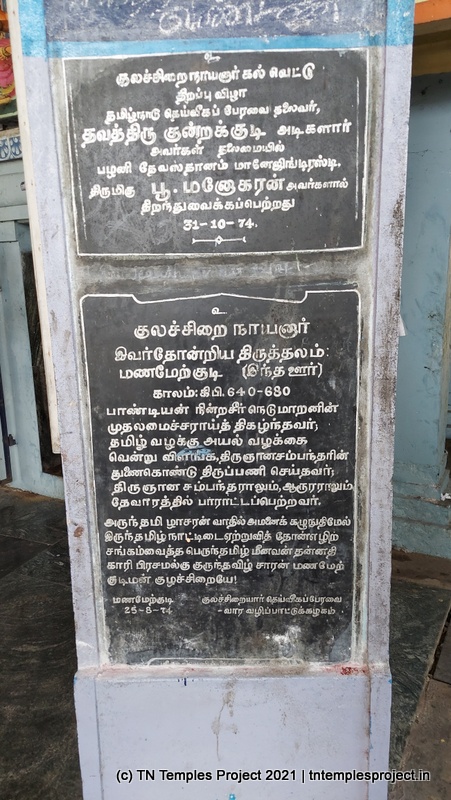 உ
குலச்சிறைநாயனார் கல் வெட்டு
திறப்பு விழா
தமிழ்நாடு தெய்வீகப் பேரவை தலைவர்,
தவத்திரு குன்றக்குடி அடிகளார்
அவர்கள் தலைமையில்
பழனி தேவஸ்தானம் மானேஜிங்டிரஸ்டி,
திருமிகு பூ. மனோகரன் அவர்களால்
திறந்துவைக்கப்பெற்றது
31-10-74.
உ
குலச்சிறை நாயனார்
இவர்தோன்றிய திருத்தலம்:
மணமேற்குடி (இந்த ஊர்)
காலம்: கி.பி. 640-680
பாண்டியன் நின்றசீர் நெடுமாறனின்
முதலமைச்சராய்த் திகழ்ந்தவர்;
தமிழ் வழக்கு அயல் வழக்கை
வென்று விளங்க, திருஞானசம்பந்தரின்
துணைகொண்டு திருப்பணி செய்தவர்;
திருஞான சம்பந்தராலும், ஆரூரராலும்
தேவாரத்தில் பாராட்டப்பெற்றவர்.
அருந்தமி ழாகரன் வாதில் அமணைக் கழுநுதிமேல்
இருந்தமிழ் நாட்டிடை ஏற்றுவித் தோன்எழிற்
சங்கம்வைத்த பெருந்தமிழ் மீனவன் தன்னதி
காரி பிரசமல்கு குருந்தவிழ் சாரன் மணமேற்
குடிமன் குலச்சிறையே!
மணமேற்குடி குலச்சிறையார் தெய்வீகப்பேரவை
25-8-74 -வார வழிப்பாட்டுக்கழகம்.
(c) TN Temples Project 2021 | tntemplesproject.in